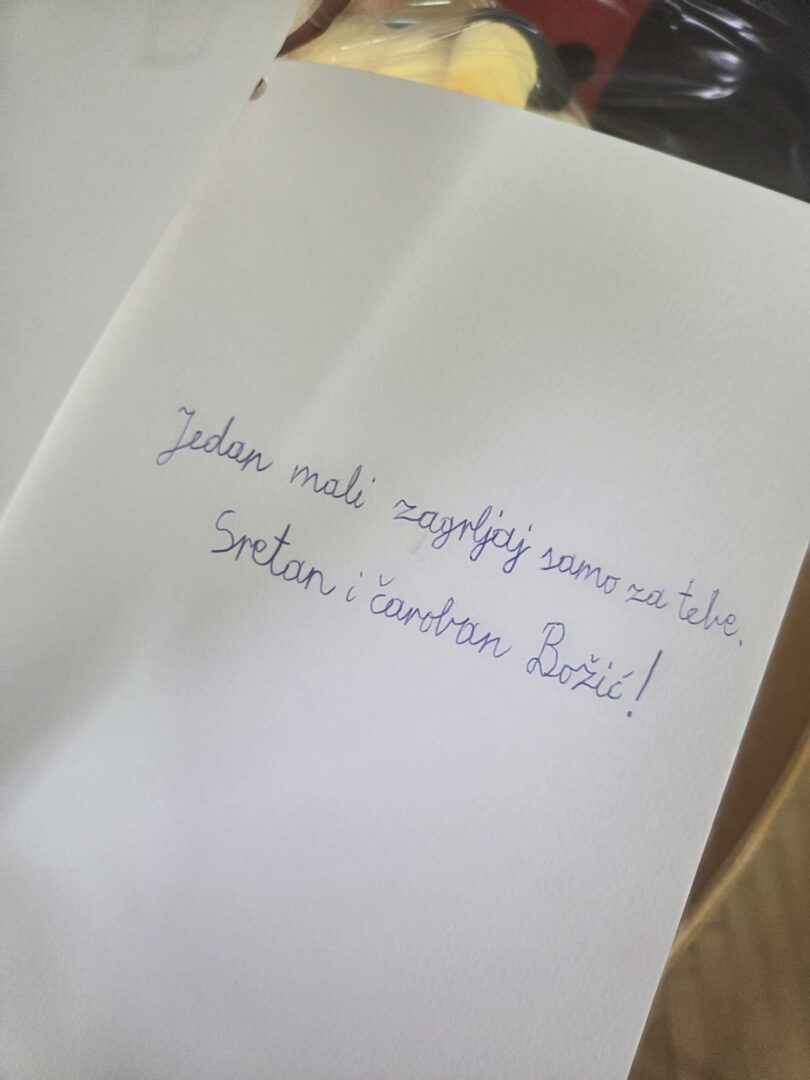 Jedan mali zagrljaj samo za tebe.
Sretan i čaroban Božić!